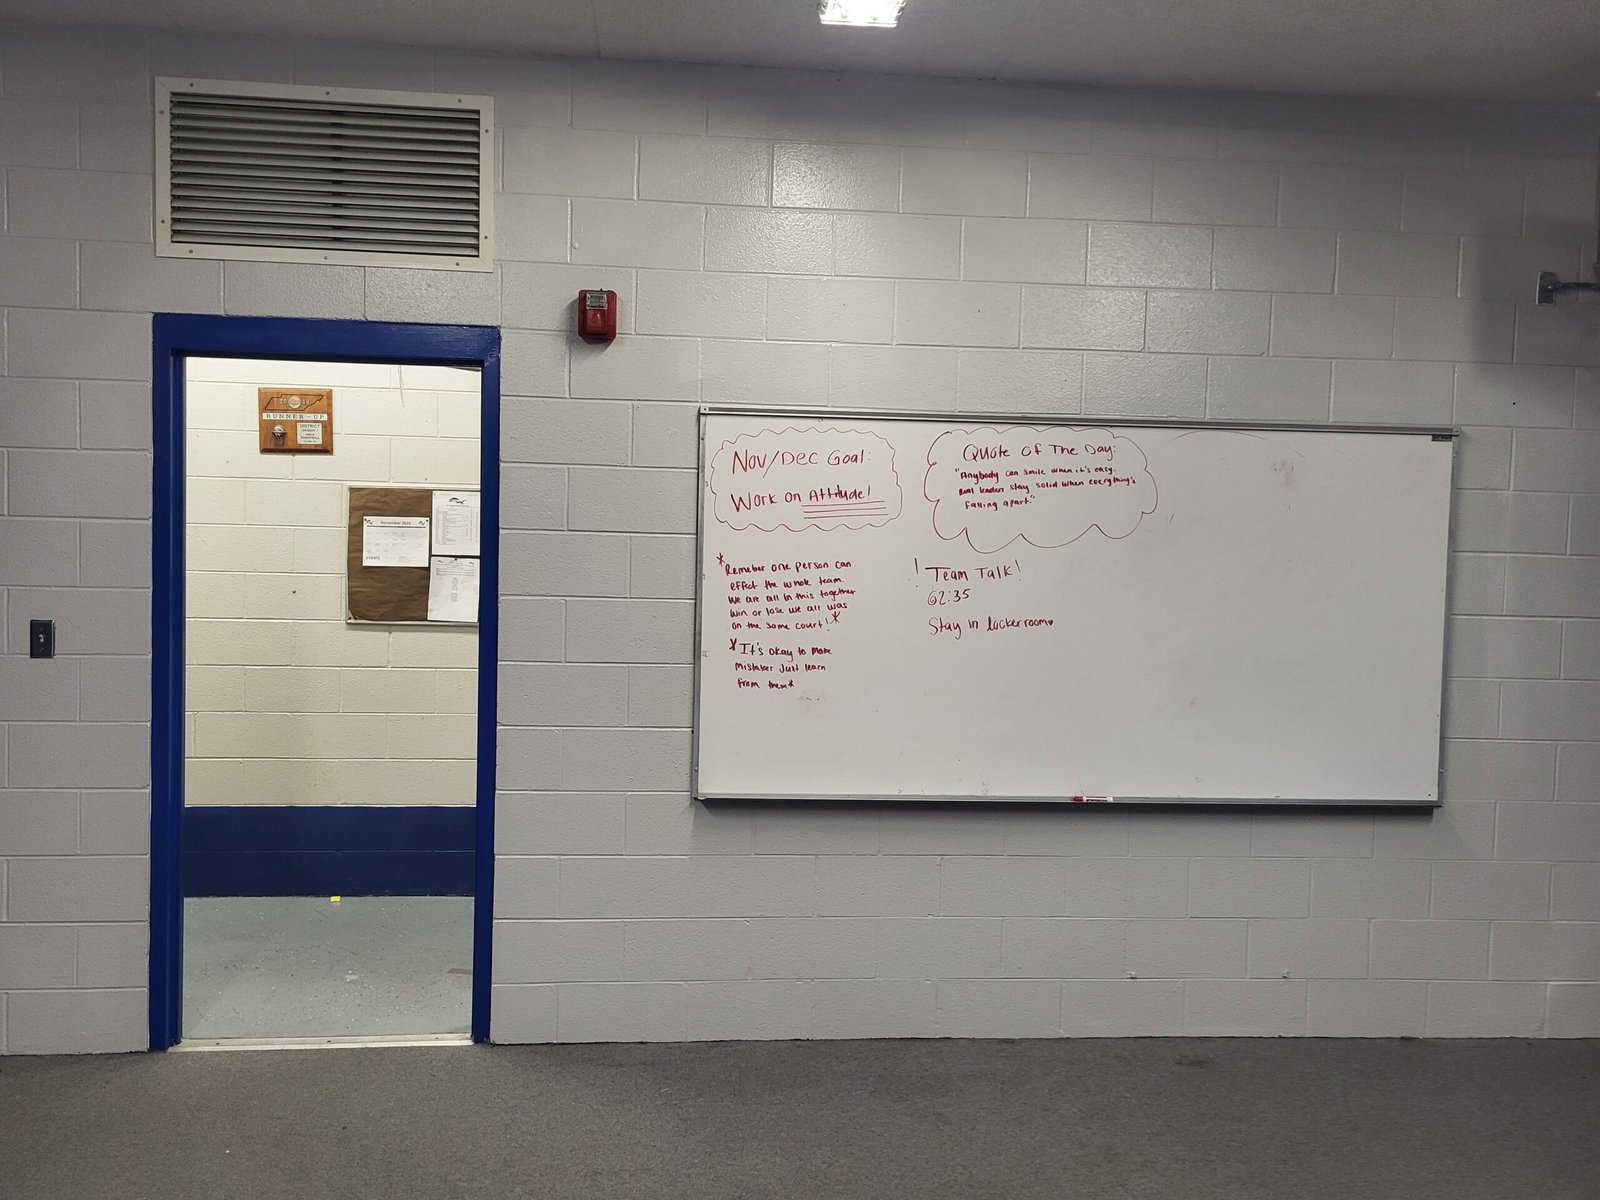 RUNNER-UP
DISTRICT
GIRLS
BASKETBALL
November 2023
EVENTS
Nov/Dec Goal:
Work on Attitude!
*Remeber one person can
effect the whole team.
We are all in this together
win or lose we all was
on the same court!*
*It's okay to make
mistakes just learn
from them*
Quote of The Day:
"Anybody can smile when it's easy.
Real leaders stay solid when everything's
falling apart."
! Team Talk!
62:35
Stay in lockerroom